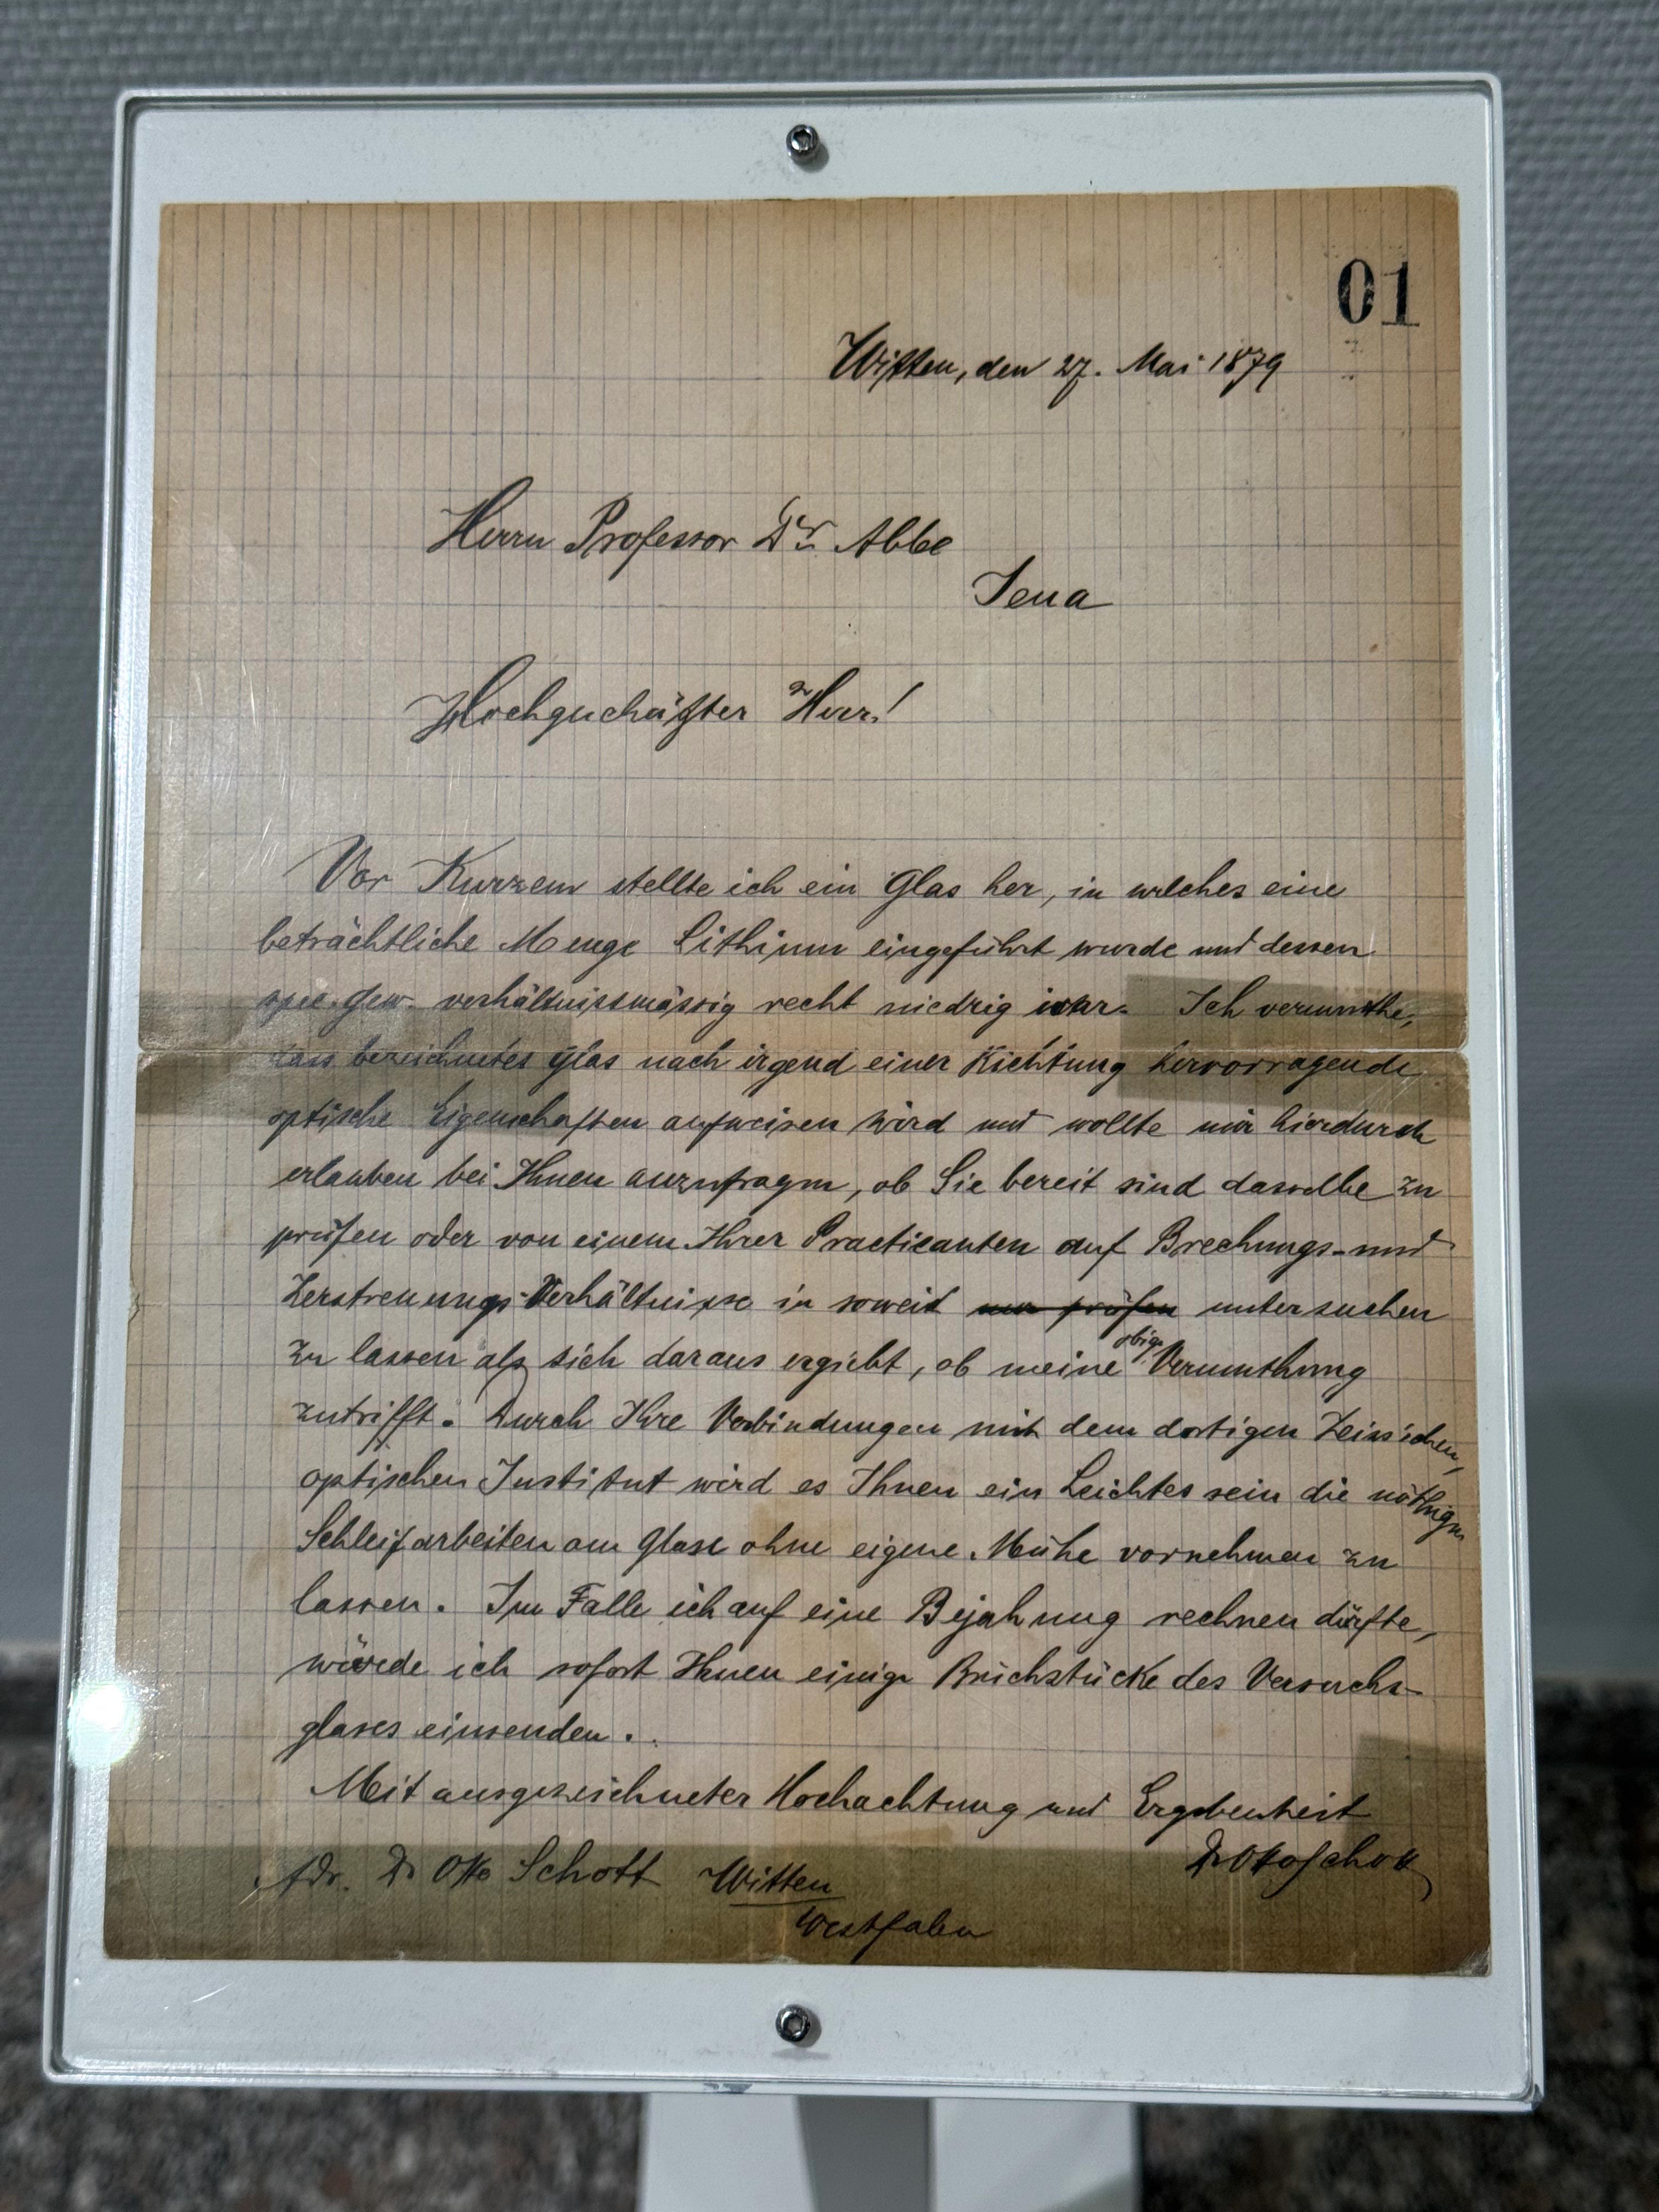 01
Witten, den 27. Mai 1879
Herrn Professor Dr. Abbe
Jena
Hochgeehrter Herr!
Vor Kurzem stellte ich ein Glas her, in welches eine
beträchtliche Menge Lithium eingeführt wurde und dessen
spec. Gew. verhältnissmässig recht niedrig war. Ich vermuthe,
dass bezeichnetes Glas nach irgend einer Richtung hervorragende
optische Eigenschaften aufweisen wird und wollte mir hierdurch
erlauben bei Ihnen anzufragen, ob Sie bereit sind dasselbe zu
prüfen oder von einem Ihrer Practicanten auf Brechungs- und
Zerstreuungs-Verhältnisse in soweit prüfen untersuchen
zu lassen als sich daraus ergiebt, ob meine obige Vermuthung
zutrifft. Durch Ihre Verbindungen mit dem dortigen Zeiss'schen,
optischen Institut wird es Ihnen ein Leichtes sein die nöthigen
Schleifarbeiten am Glase ohne eigene Mühe vornehmen zu
lassen. Im Falle ich auf eine Bejahung rechnen dürfte,
würde ich sofort Ihnen einige Bruchstücke des Versuchs-
glases einsenden.
Mit ausgezeichneter Hochachtung und Ergebenheit
Dr Otto Schott
Adr. Dr Otto Schott Witten
Westfalen